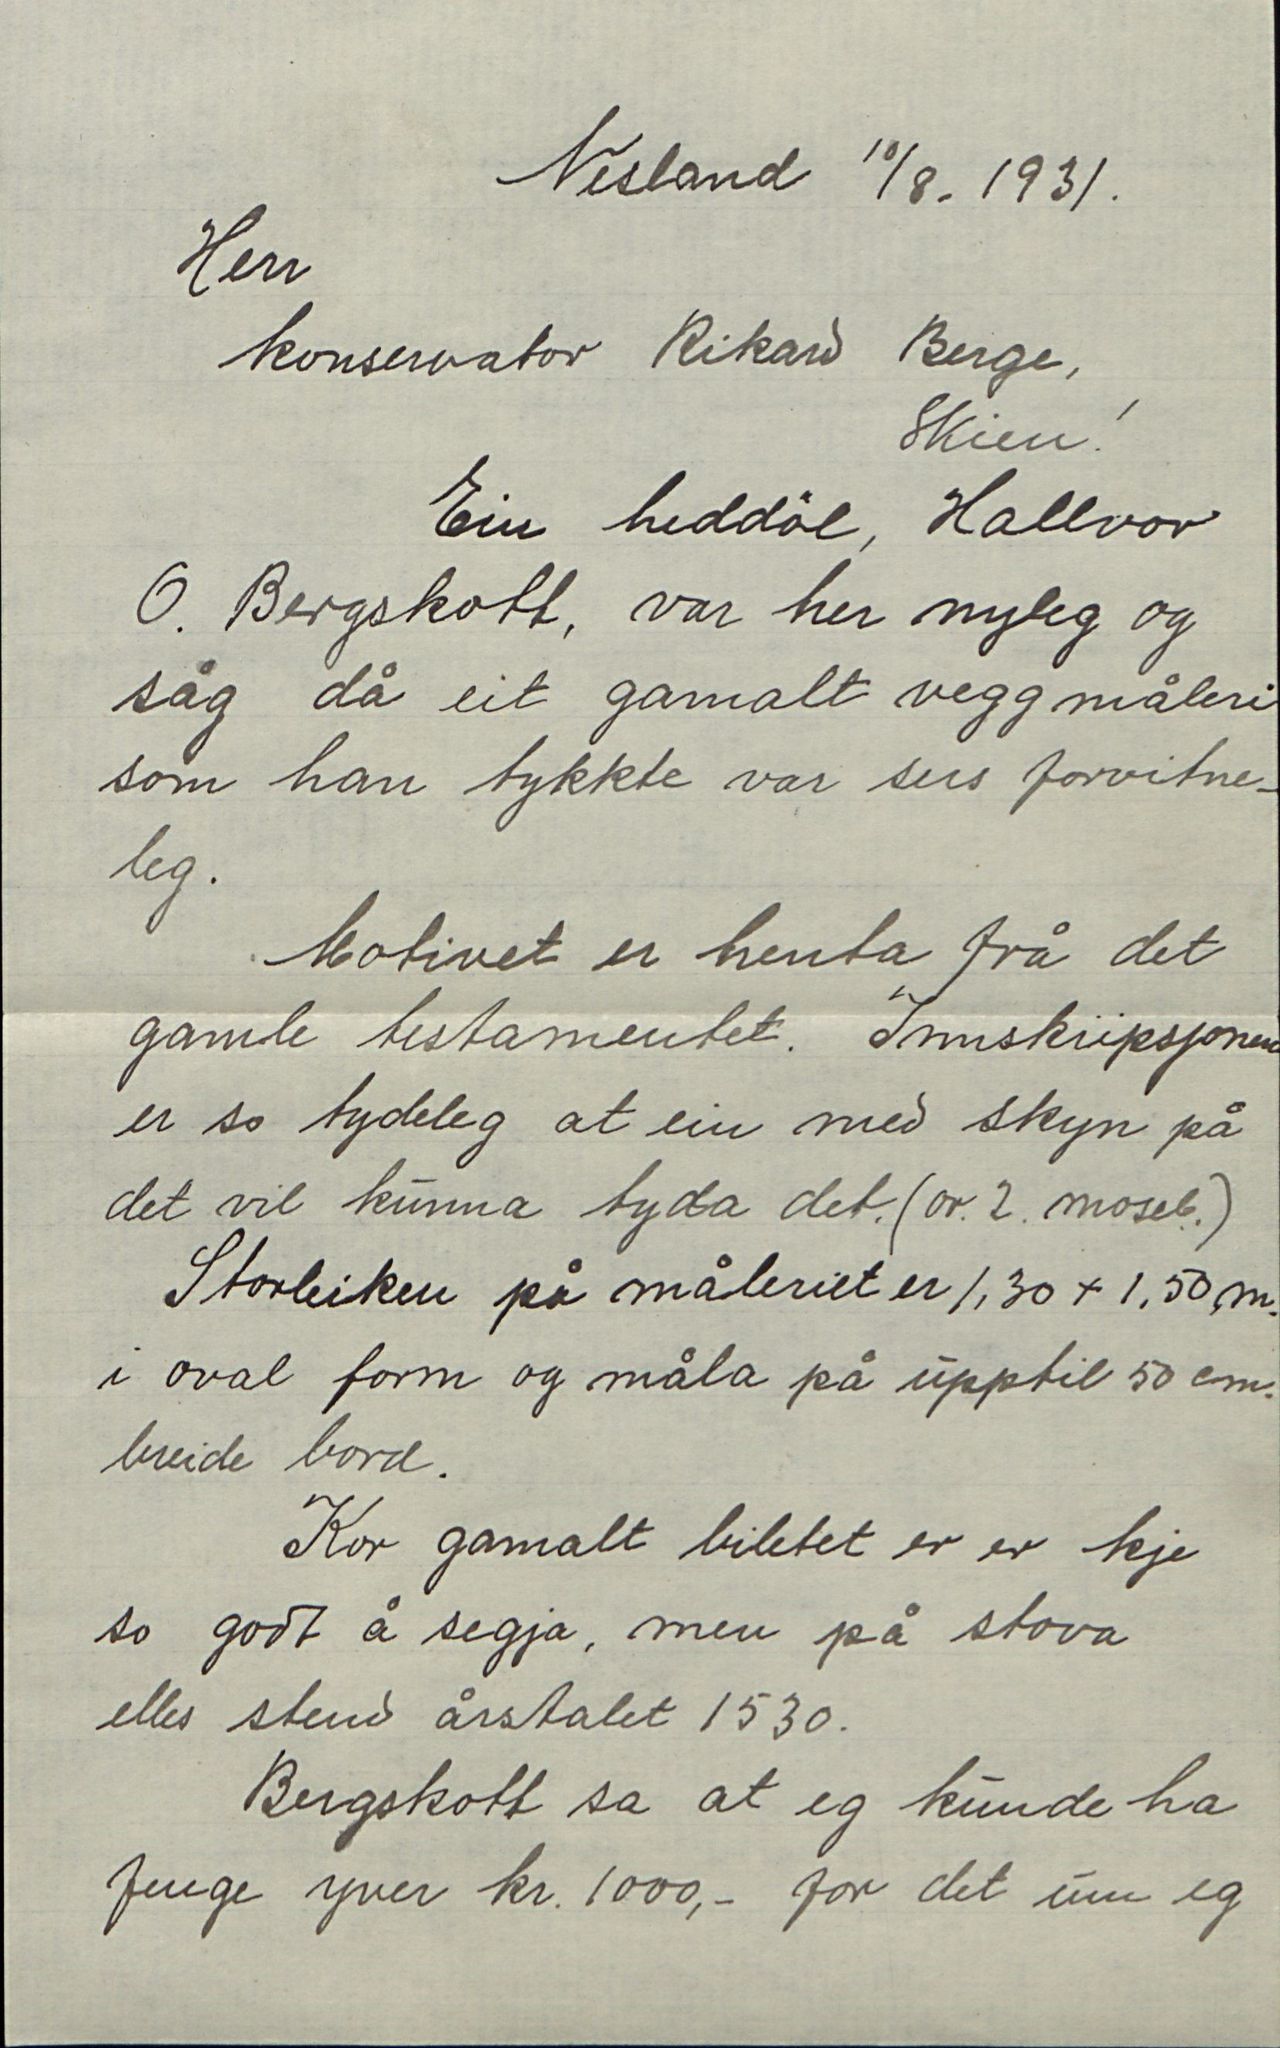 Nesland 10/8. 1931.
Herr
konservator Rikard Berge,
Skien!
Ein heddöl, Hallvor
O. Bergskott, var her nyleg og
såg då eit gamalt veggmåleri
som han tykkte var sers forvitne-
leg.
Motivet er henta frå det
gamle testamentet. Innskripsjonen
er so tydeleg at ein med skyn på
det vil kunna tyda det. (or. 2. moseb.)
Storleiken på måleriet er 1,30 + 1,50 m.
i oval form og måla på upptil 50 cm.
breide bord.
Kor gamalt biletet er er kje
so godt å segja, men på stova
elles stend årstalet 1530.
Bergskott sa at eg kunde ha
fenge yver kr. 1000,- for det um eg